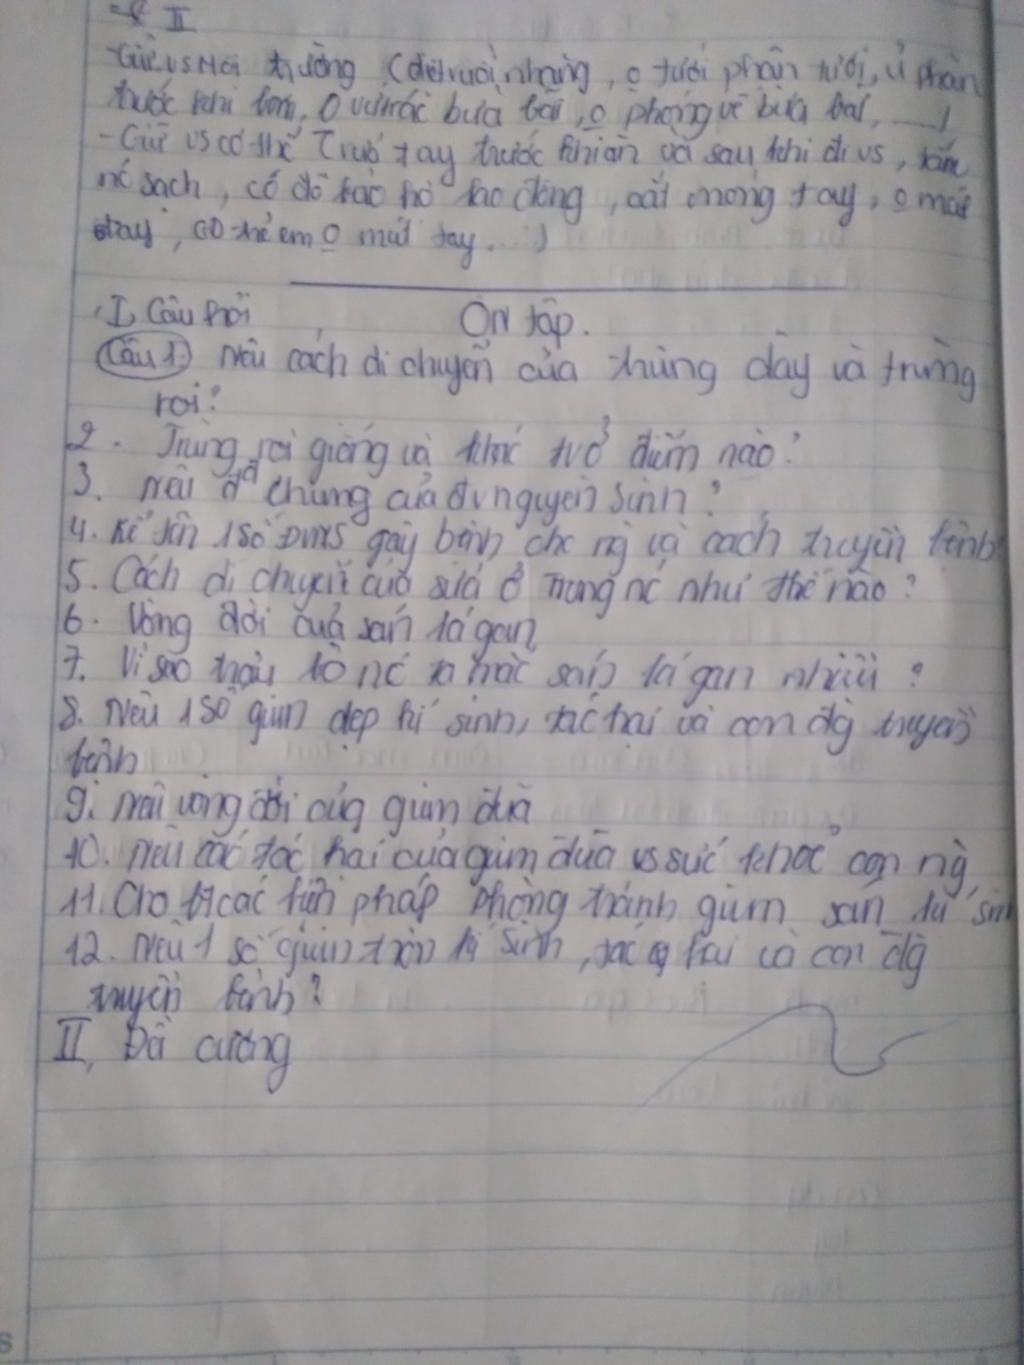 II
- Giữ vs Môi trường (diệt ruồi nhặng, o tưới phân tươi, ủ phân
trước khi bón, o vứt rác bừa bãi, o phóng uế bừa bãi, ....)
- Giữ vs cơ thể (rửa tay trước khi ăn và sau khi đi vs, tắm
nc sạch, có đồ bảo hộ lao động, cắt móng tay, o mút
tay, trẻ em o mút tay...)
I, Câu hỏi Ôn tập.
Câu 1: Nêu cách di chuyển của trùng dày và trùng
roi?
2. Trùng roi giống và khác tv ở điểm nào?
3. Nêu đ² chung của đv nguyên sinh?
4. Kể tên 1 số ĐVNS gây bệnh cho ng và cách truyền bệnh
5. Cách di chuyển của sứa ở trong nc như thế nào?
6. Vòng đời của sán lá gan
7. Vì sao trâu bò nc ta mắc sán lá gan nhiều?
8. Nêu 1 số giun dẹp kí sinh, tác hại và con đg truyền
bệnh
9. Nêu vòng đời của giun đũa
10. Nêu các tác hại của giun đũa vs sức khoẻ con ng
11. Cho bt các biện pháp phòng tránh giun sán kí sinh
12. Nêu 1 số giun tròn kí sinh, tác hại và con đg
truyền bệnh?
II, Đề cương